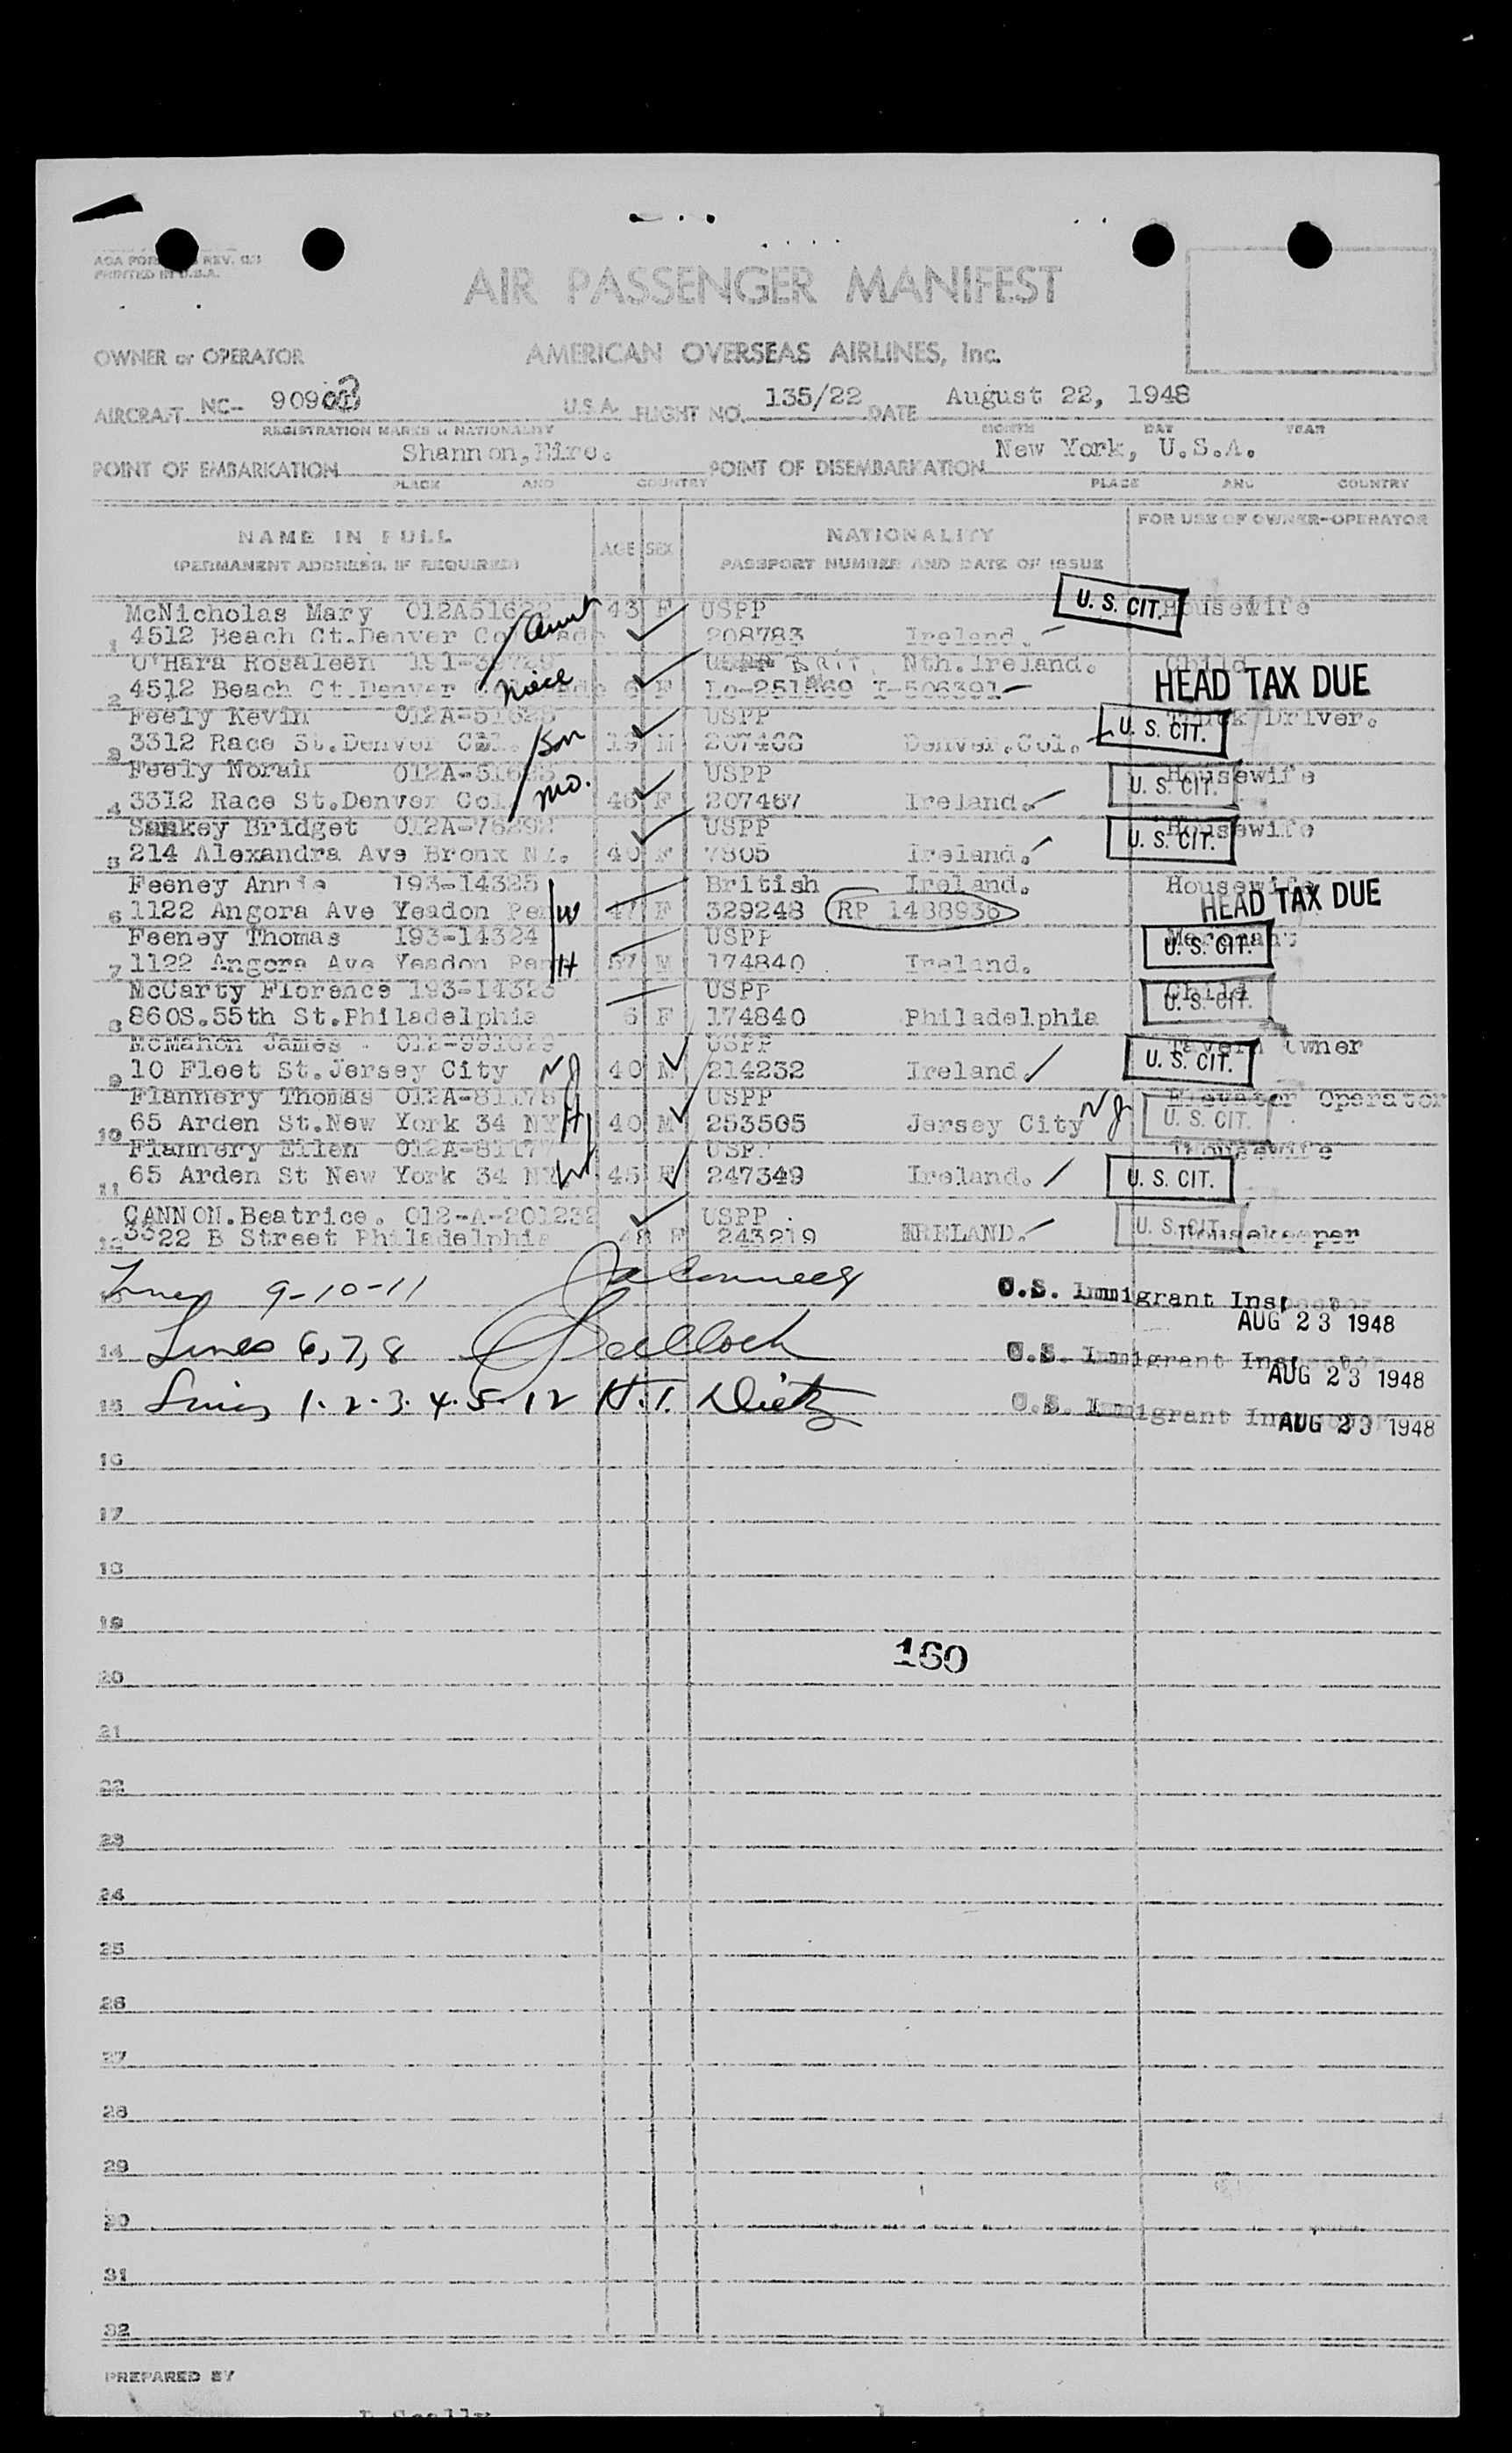 PRINTED IN U.S.A.
AIR PASSENGER MANIFEST
OWNER or OPERATOR AMERICAN OVERSEAS AIRLINES, Inc.
AIRCRAFT NC- U.S.A. FLIGHT NO. 135/22 DATE August 22, 1948
REGISTRATION MARKS & NATIONALITY MONTH DAY YEAR
POINT OF EMBARKATION Shannon, Eire. POINT OF DISEMBARKATION New York, U.S.A.
PLACE AND COUNTRY PLACE AND COUNTRY
NAME IN FULL AGE SEX NATIONALITY FOR USE OF OWNER-OPERATOR
(PERMANENT ADDRESS, IF REQUIRED) PASSPORT NUMBER AND DATE OF ISSUE
McNicholas Mary 012A51622 Aunt 43 F USPP U. S. CIT. Housewife
1 4512 Beach Ct.Denver 208783 Ireland.
O'Hara Rosaleen Niece BRIT. Nth.Ireland. Child
2 4512 Beach Ct.Denver F I-506391 HEAD TAX DUE
Feely Kevin 012A-51625 USPP Truck Driver.
3 3312 Race St.Denver Col. Son 19 M 207468 Denver.Col. U. S. CIT.
Feely Norah USPP Housewife
4 3312 Race St.Denver Col. Mo. 46 F 207467 Ireland. U. S. CIT.
Sankey Bridget 012A-76292 USPP Housewife
5 214 Alexandra Ave Bronx NY. 40 F 7805 Ireland. U. S. CIT.
Feeney Annie 193-14325 British Ireland. Housewife
6 1122 Angora Ave Yeadon W 47 F 329248 RP 1488936 HEAD TAX DUE
Feeney Thomas 193-14324 USPP Merchant
7 1122 Angora Ave Yeadon H 57 M 174840 Ireland. U. S. CIT.
McCarty Florence 193-14323 USPP Child
8 860S.55th St.Philadelphia 6 F 174840 Philadelphia U. S. CIT.
McMahon James USPP Tavern Owner
9 10 Fleet St.Jersey City NJ 40 M 214232 Ireland. U. S. CIT.
Flannery Thomas 012A-81178 USPP Elevator Operator
10 65 Arden St.New York 34 NY H 40 M 253505 Jersey City NJ U. S. CIT.
Flannery Ellen 012A-81177 Housewife
11 65 Arden St New York 34 NY W 45 F 247349 Ireland. U. S. CIT.
CANNON.Beatrice. 012-A-201232 USPP
12 3322 B Street Philadelphia 48 F 243219 IRELAND. U. S. CIT. Housekeeper
13 Lines 9-10-11 U.S. Immigrant Inspector
AUG 23 1948
14 Lines 6,7,8 U.S. Immigrant Inspector
AUG 23 1948
15 Lines 1.2.3.4.5.12 H.I. Dietz U.S. Immigrant Inspector
AUG 23 1948
16
17
18
19
160
20
21
22
23
24
25
26
27
28
29
30
31
32
PREPARED BY